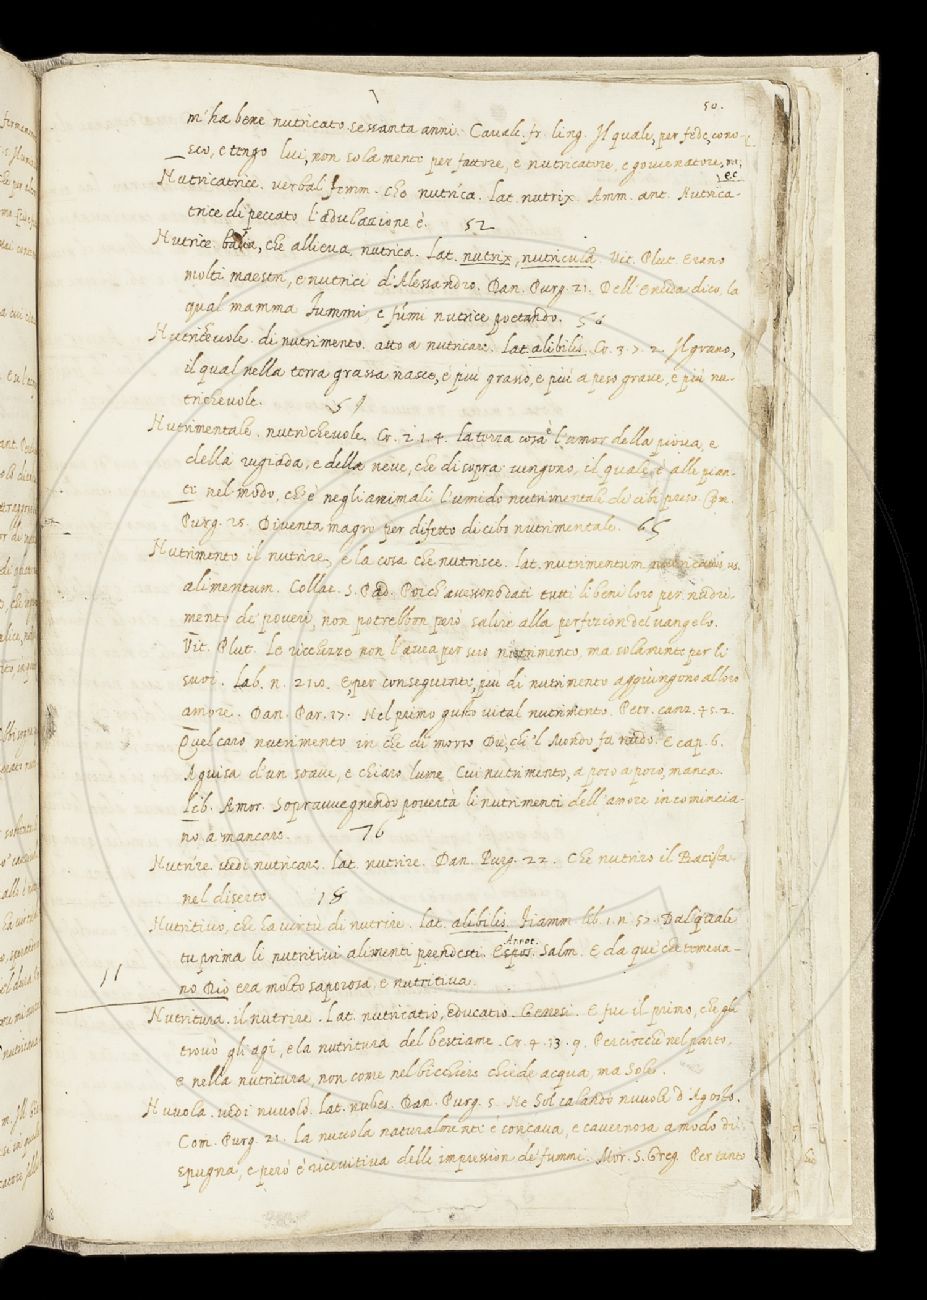 50.
m'ha bene nutricato sessanta anni. Caval. fr. ling. Il quale, per fede, cono-
sco, e tengo lui, non solamente per fattore, e nutricatore, e governatore, mi,
ec.
Nutricatrice. verbal femm. che nutrica. Lat. nutrix. Amm. ant. Nutrica-
trice di peccato l'adulazione è. 52
Nutrice. balia, che allieva, nutrica. Lat. nutrix, nutricula. Vit. Plut. Erano
molti maestri, e nutrici d'Alessandro. Dan. Purg. 21. Dell'Eneida dico, la
qual mamma fummi, e fúmi nutrice poetando. 56
Nutrichevole. di nutrimento. atto a nutricare. Lat. alibilis. Cr. 3. 7. 2. Il grano,
il qual nella terra grassa nasce, è più grasso, e più a peso grave, e più nu-
trichevole. 59
Nutrimentale. nutrichevole. Cr. 2. 1. 4. La terza cosa è l'umor della piova, e
della rugiada, e della neve, che di sopra vengono, il quale è alle pian-
te nel modo, che è negli animali l'umido nutrimentale di cibi preso. Com.
Purg. 25. Diventa magro per difetto di cibo nutrimentale. 65
Nutrimento il nutrire, e la cosa che nutrisce. Lat. nutrimentum nutricatus, us.
alimentum. Collat. S. Pad. Poichè avessono dati tutti li beni loro per nudri-
mento de' poveri, non potrebbon però salire alla perfezion del vangelo.
Vit. Plut. Le ricchezze non l'avea per suo nutrimento, ma solamente per li
suoi. Lab. n. 210. E, per conseguente, più di nutrimento aggiungono al loro
amore. Dan. Par. 17. Nel primo gusto vital nutrimento. Petr. canz. 45. 2.
Quel caro nutrimento in che di morte Dè, ch'l Mondo fa nudo. E cap. 6.
A guisa d'un soave, e chiaro lume, Cui nutrimento, a poco a poco, manca.
Lib. Amor. Sopravvegnendo povertà li nutrimenti dell'amore incomincia-
no a mancare. 76
Nutrire. vedi nutricare. Lat. nutrire. Dan. Purg. 22. Che nutriro il Batista
nel diserto. 18
Nutritivo, che ha virtù di nutrire. Lat. alibilis. Fiamm. lib. 1. n. 57. Dal quale
tu prima li nutritivi alimenti prendesti. Espos. Salm. E da que' che temeva-
Annot.
no Dio era molto saporosa, e nutritiva.
11
Nutritura. il nutrire. Lat. nutricatio, educatio. Genesi. E fue il primo, che gli
trovò gli agi, e la nutritura del bestiame. Cr. 4. 13. 9. Perciocchè nel parto,
e nella nutritura, non come nel bicchiere chiede acqua, ma Sole.
Nuvola. vedi nuvolo. Lat. nubes. Dan. Purg. 5. Ne Sol calando nuvole d'Agosto.
Com. Purg. 21. La nuvola naturalmente è concava, e cavernosa a modo di
Spugna, e però è ricevitiva delle impression de' fummi. Mor. S. Greg. Per tanto